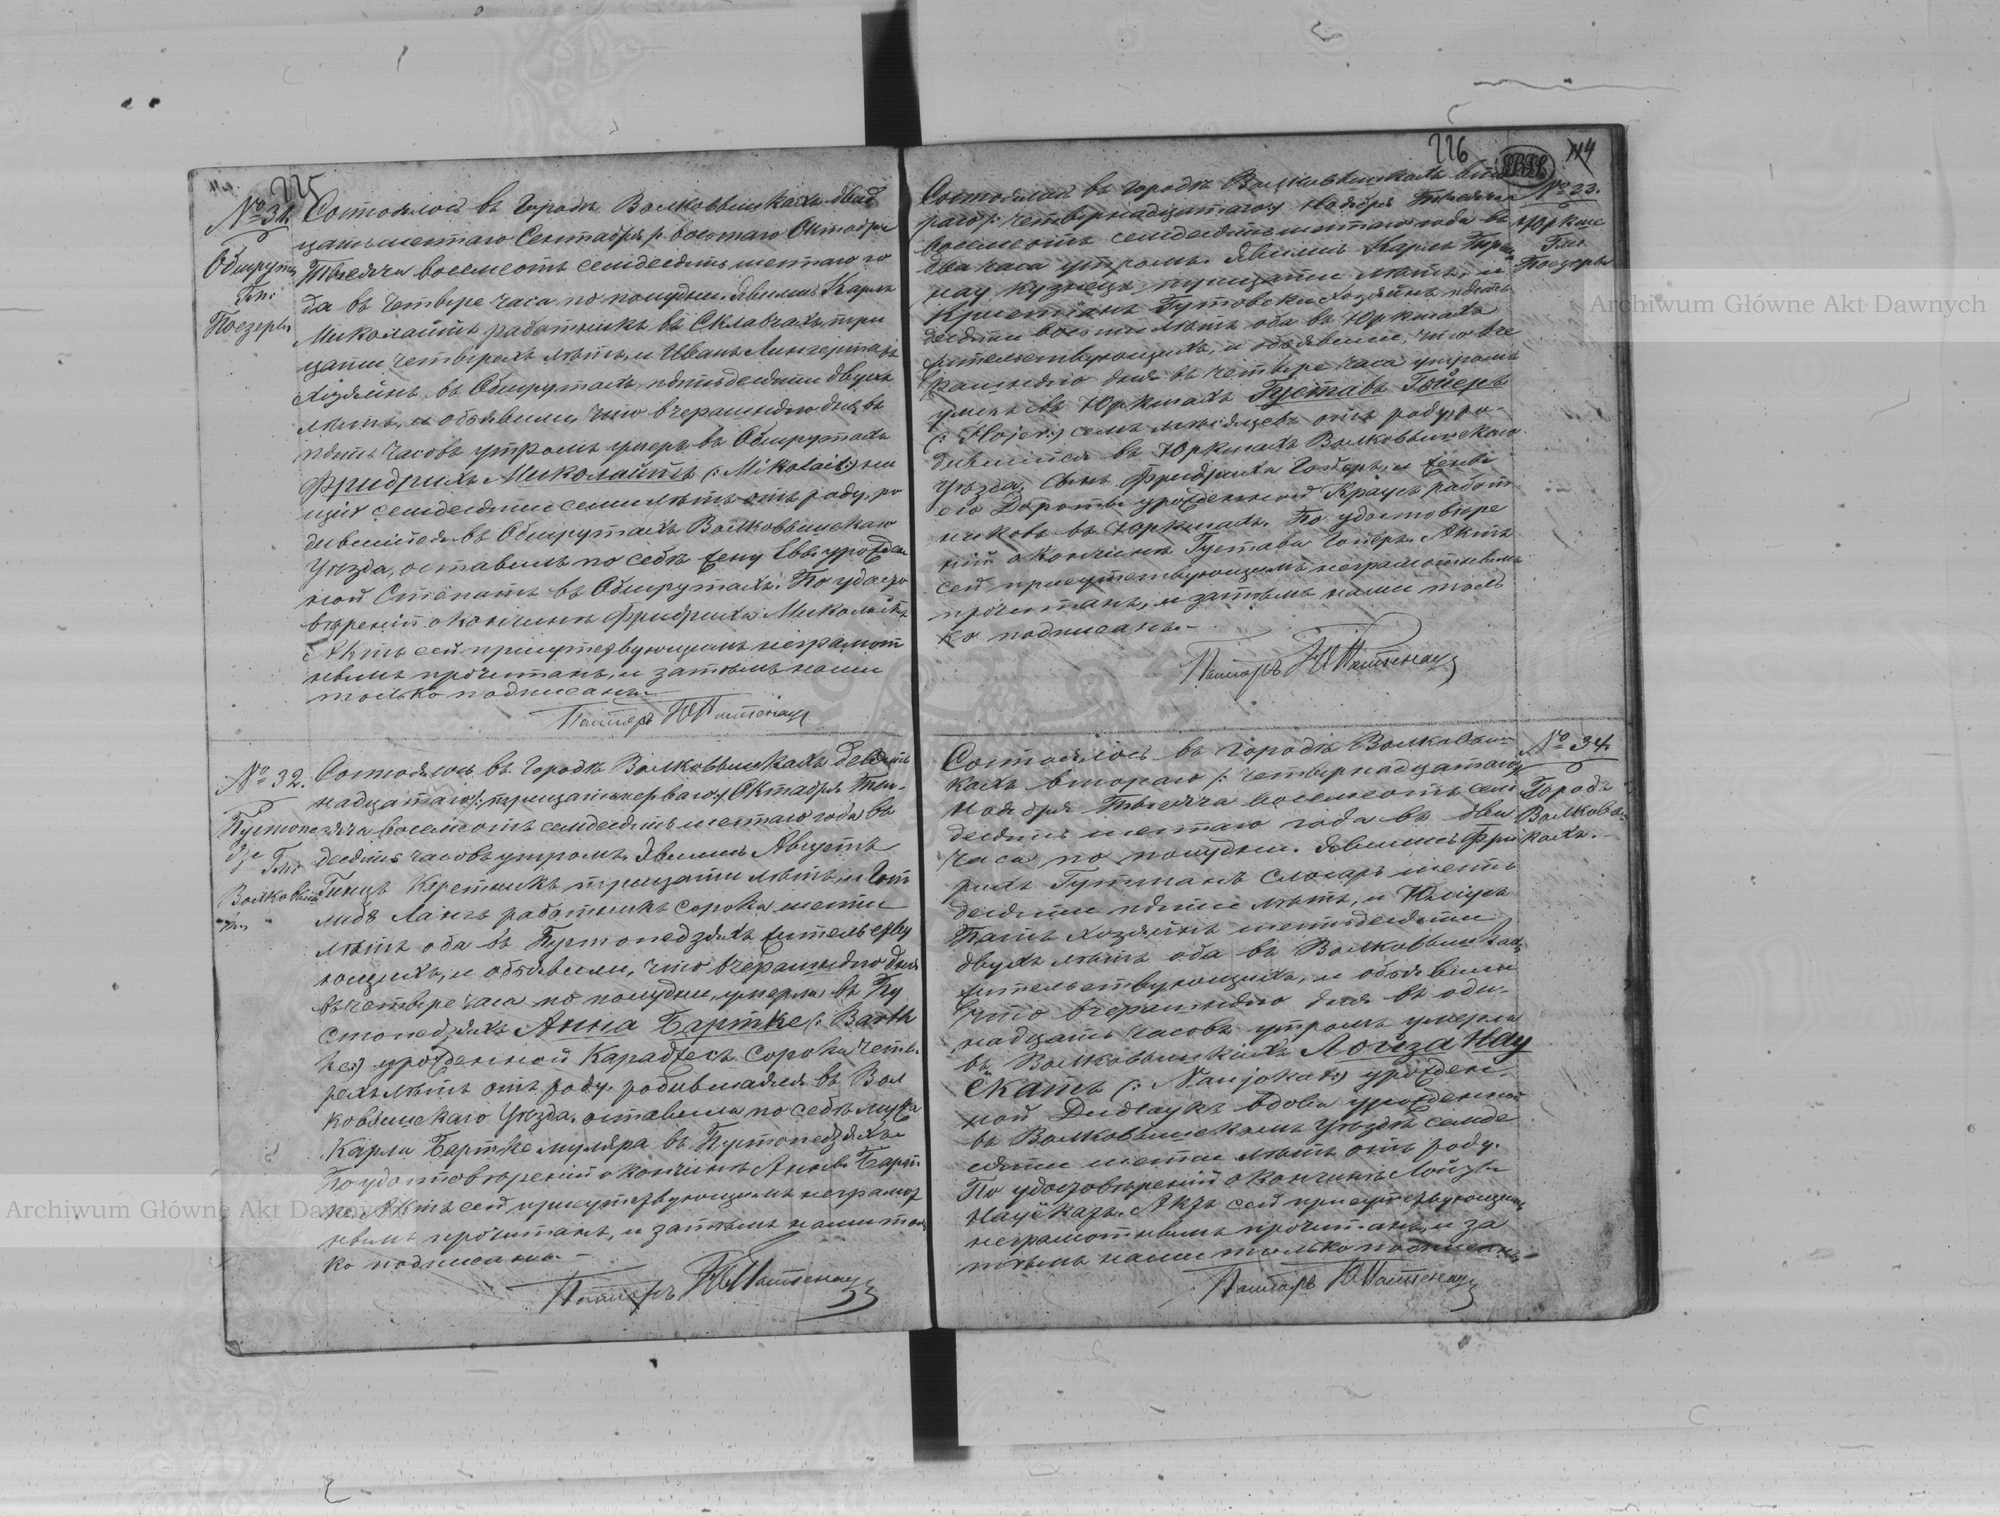 225
№ 31.
Обшруты
Гм:
Поезеры
Состоялось въ городѣ Волковышкахъ двад
цать шестаго Сентября /: восьмаго Октября
Тысяча восемсотъ семдесять шестаго го
да въ четыре часа по полудни. Явились Карлъ
Миколайтъ работникъ въ Склавчахъ, три
цати четырехъ лѣтъ, и Иванъ Лингерта
хозяинъ въ Обшрутахъ, пятьдесяти двухъ
лѣтъ, и объявили, что вчерашнаго дня въ
пять часовъ утромъ умеръ въ Обшрутахъ
Фридрихъ Миколайтъ (: Mikolait:)
семдесяти семи лѣтъ отъ роду, ро
дившійся въ Обшрутахъ Волковышскаго
Уѣзда, оставилъ по себѣ жену Еву урожден
ной Степатъ въ Обшрутахъ. По удосто
вѣреніи о кончинѣ Фридриха Миколайта
Актъ сей присутствующимъ неграмот
нымъ прочитанъ, и затѣмъ нами
только подписанъ.
Пасторъ
№ 32.
Пустопе
дзе
Гм:
Волковыш
ки
Состоялось въ городѣ Волковышкахъ девят
надцатаго /: трицать перваго / Октября Тыс
яча восемсотъ семдесять шестаго года въ
десять часовъ утромъ. Явились Августъ
Гинцъ Коретникъ трицати лѣтъ, и Гот
либъ Лангъ работникъ сорока шести
лѣтъ оба въ Пустопедзяхъ жительству
ющихъ, и объявили, что вчерашнаго дня
въ четыре часа по полудни, умерла въ Пу
стопедзяхъ Анна Бартке (: Barth
ke:) урожденной Карадтесъ сорока четы
рехъ лѣтъ отъ роду, родившаяся въ Вол
ковышскаго Уѣзда, оставила по себѣ мужа
Карла Бартке муляра въ Пустопедзяхъ.
По удостовѣреніи о кончинѣ Анны Барт
ке, Актъ сей присутствующимъ неграмот
нымъ прочитанъ, и затѣмъ нами толь
ко подписанъ.
Пасторъ
226
114
№ 33.
Юркше
Гм:
Поезеры
Состоялось въ городѣ Волковышкахъ вто
раго /: четырнадцатаго / Ноября Тысяча
восемсотъ семдесять шестаго года въ
два часа утромъ. Явились Карлъ
нау кузнецъ, трицати лѣтъ, и
Кристіанъ Гутовски хозяинъ пять
десяти восьми лѣтъ оба въ Юркшахъ
жительствующихъ, и объявили, что вче
рашнаго дня въ четыре часа утромъ
умеръ въ Юркшахъ Густавъ Гойеръ
(: Hojer:) семь мѣсяцевъ отъ роду, ро-
дившійся въ Юркшахъ Волковышскаго
Уѣзда, сынъ Фридриха Гойеръ, и жены
его Дороты урожденной Краусъ работ
никовъ въ Юркшахъ. По удостовѣре
ніи о кончинѣ Густава Гойеръ. Актъ
сей присутствующимъ неграмотнымъ
прочитанъ, и затѣмъ нами толь
ко подписанъ.
Пасторъ
№ 34.
Городъ
Волковы-
шки.
Состоялось въ городѣ Волковыш-
кахъ втораго /: четырнадцатаго
Ноября Тысяча восемсотъ сем
десять шестаго года въ два
часа по полудни. Явились Фрид
рихъ Гутманъ слюсаръ шесть
десяти пяти лѣтъ, и Юліусъ
хозяинъ шестьдесяти
двухъ лѣтъ оба въ Волковышкахъ
жительствующихъ, и объявили
что вчерашнаго дня въ оди-
надцать часовъ утромъ умерла
въ Волковышкахъ Лойза Нау
ёкатъ (: Naujokat:) урожден-
ной Дидлаукъ вдова урожденной
въ Волковышскомъ Уѣздѣ семде
сяти шести лѣтъ отъ роду.
По удостовѣреніи о кончинѣ Лойзы
Науёкатъ. Актъ сей присутствующимъ
неграмотнымъ прочитанъ, и за
тѣмъ нами только подписанъ.
Пасторъ
Archiwum Główne Akt Dawnych
Archiwum Główne Akt Dawnych